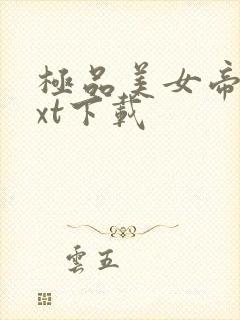 極品美女帝
xt下載
雲五